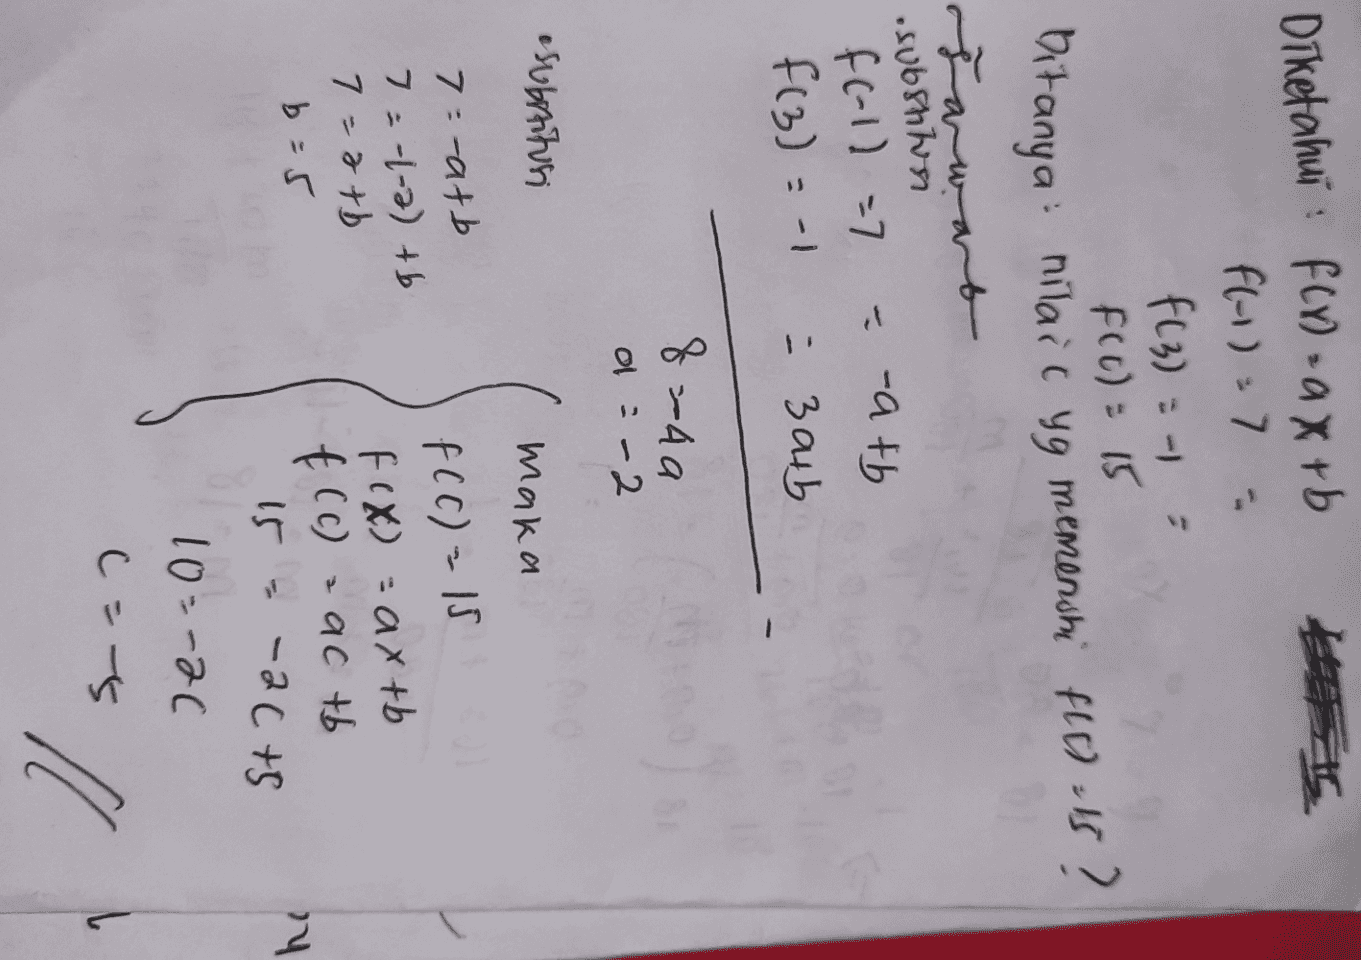 Diketahui : f(x) = ax + b
f(-1) = 7 =
f(3) = -1 =
f(c) = 15
Ditanya : nilai c yg memenuhi f(c) = 15 ?
Jawab
• substitusi
f(-1) = 7 = -a + b
f(3) = -1 = 3a+b
-
8 = -4a
a = -2
• substitusi
7 = -a+b
7 = -(-2) + b
7 = 2 + b
b = 5
maka
f(c) = 15
f(x) = ax + b
f(c) = ac + b
15 = -2c + 5
10 = -2c
c = -5